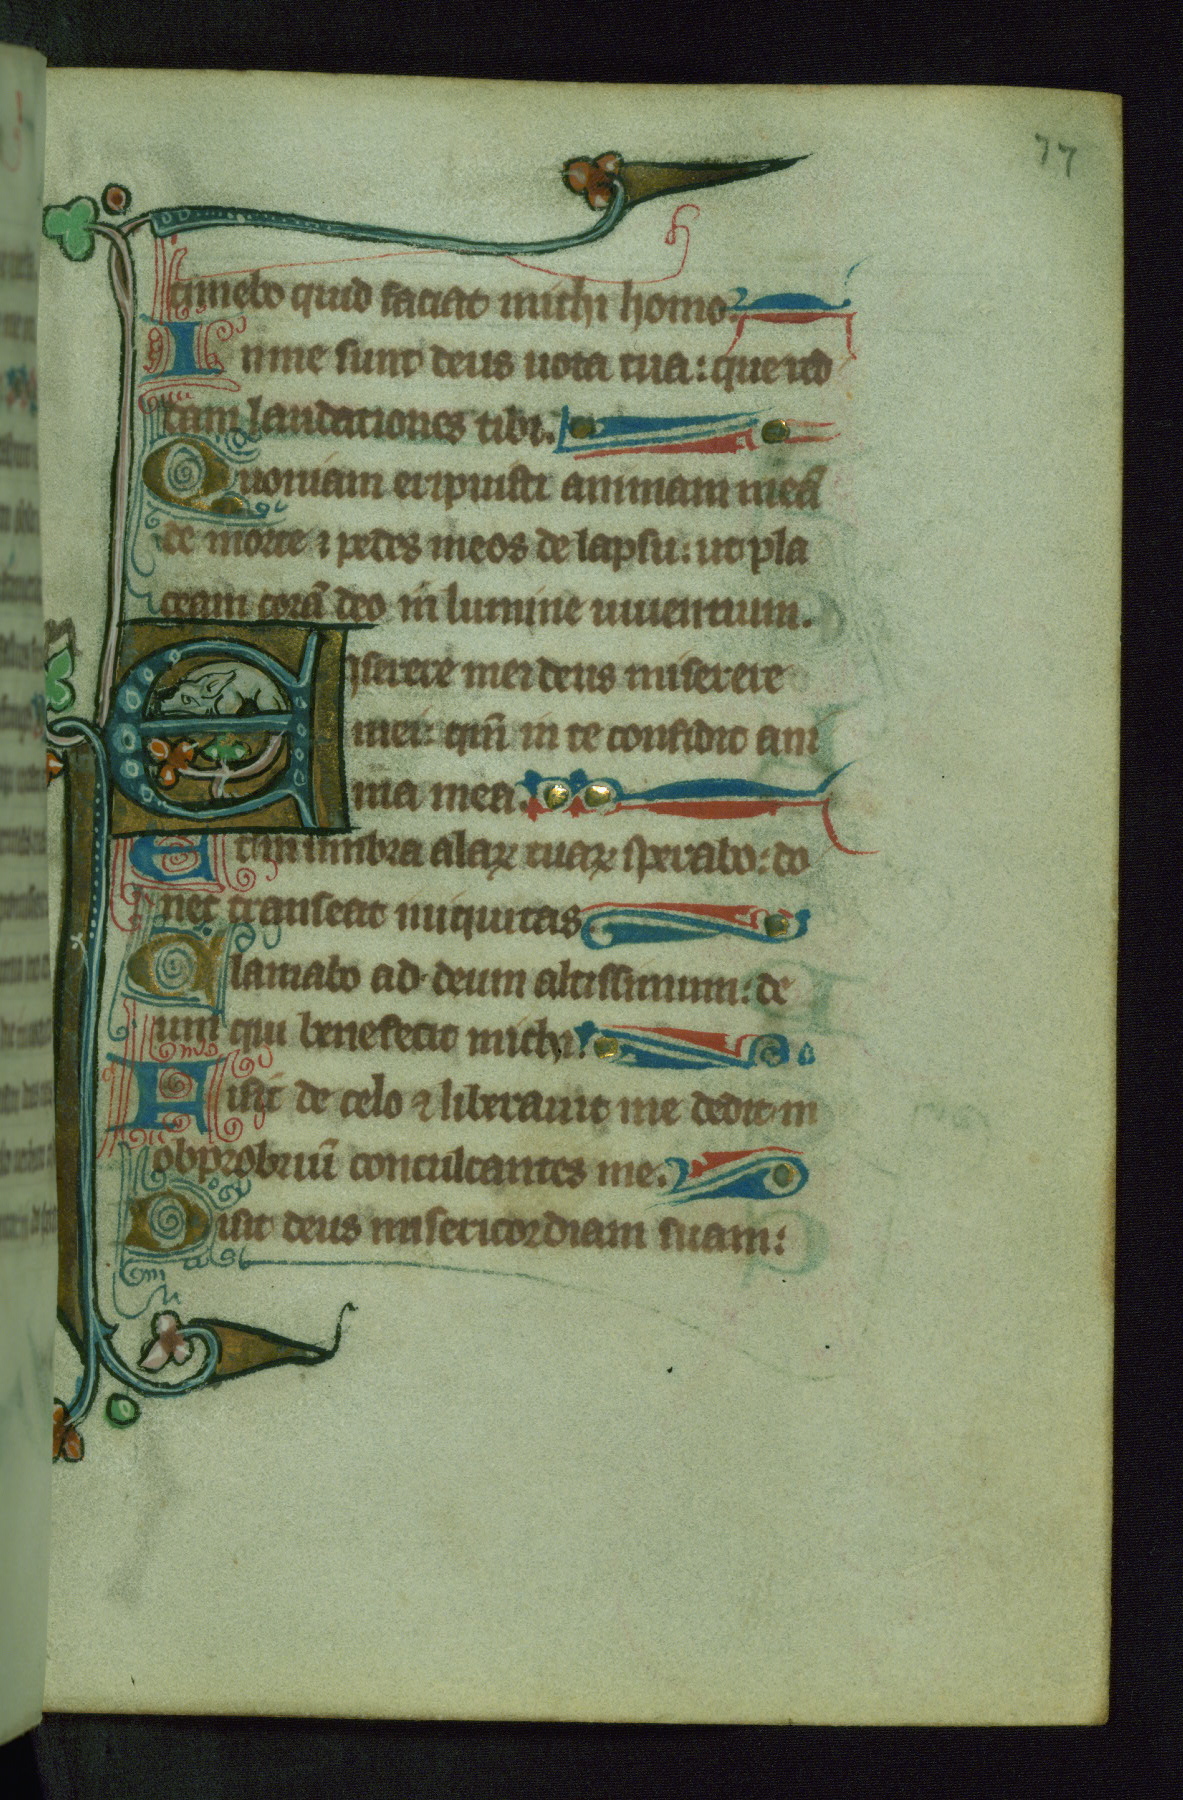 77
timebo quid faciat michi homo.
In me sunt deus uota tua: que red
dam laudationes tibi.
Quoniam eripuisti animam meā
de morte ⁊ pedes meos de lapsu: ut pla
ceam corā deo in lumine uiuentium.
Miserere mei deus miserere
mei: qm̄ in te confidit ani
ma mea.
Et in umbra alaꝝ tuaꝝ sperabo: do
nec transeat iniquitas
Clamabo ad deum altissimum: de
um qui benefecit michi.
Misit de celo ⁊ liberauit me dedit in
obprobriū conculcantes me.
Misit deus misericordiam suam: